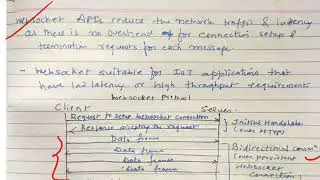 WebSocket APIs reduce the network traffic & latency
as there is no overhead for connection setup &
termination requests for each message
- Websocket suitable for IoT applications that
have low latency or high throughput requirements
Websocket Protocol
Client Server
Request to setup Websocket Connection
Initial Handshake
(over HTTP)
Response accepting the request
Data frame
Data frame
Bidirectional Comm
(over persistent
Data frame
Websocket
Data frame
Connection)